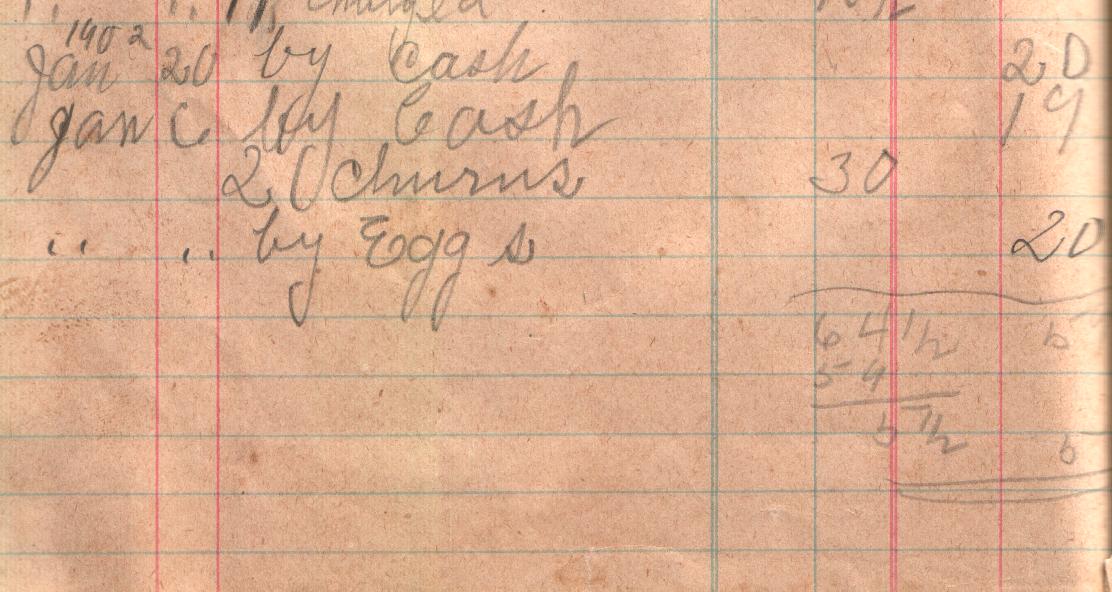 charged
1902
Jan 20 by Cash 20
Jan 6 by Cash 19
20 churns 30
.. .. by Eggs 20
64 1/2 5
59
5 1/2 5